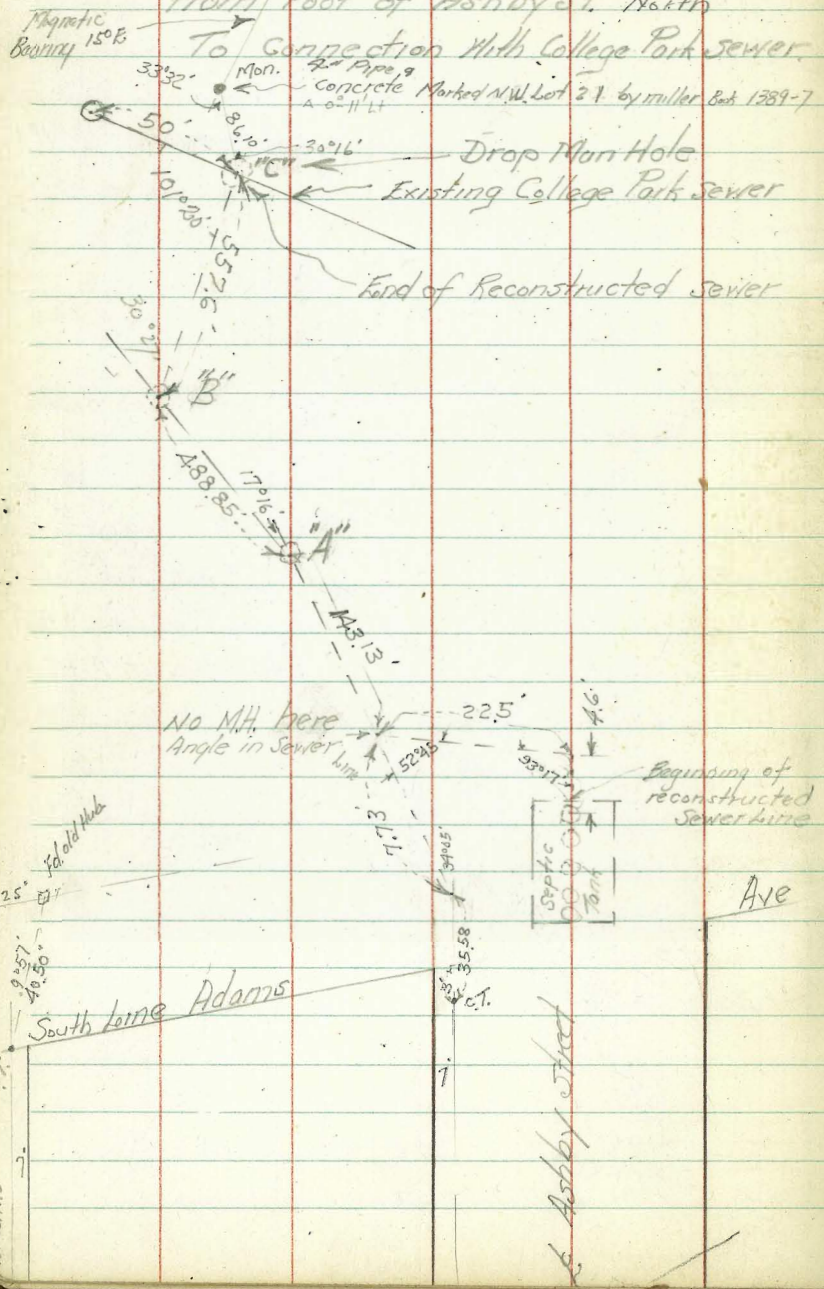 From Foot of Ashby St. North
To Connection With College Park Sewer.
Magnetic
Bearing 15°E
33°32'
Mon.
4" Pipe &
Concrete Marked N.W. Lot 21 by miller Book 1389-7
50'
86.10'
30°16'
"C"
Drop Man Hole
Existing College Park Sewer
101°20'
557.6'
End of Reconstructed Sewer
30°27'
"B"
488.85'
17°16'
"A"
143.13'
No M.H. here
Angle in Sewer Line
22.5'
4.6'
52°45'
93°17'
Beginning of
reconstructed
Sewer Line
7.73'
34°05'
Septic
Tank
Fd. old Hub
25'
9°57'
40.50'
35.58
South Line Adams
Ave
7.
7.
℄ Ashby Street